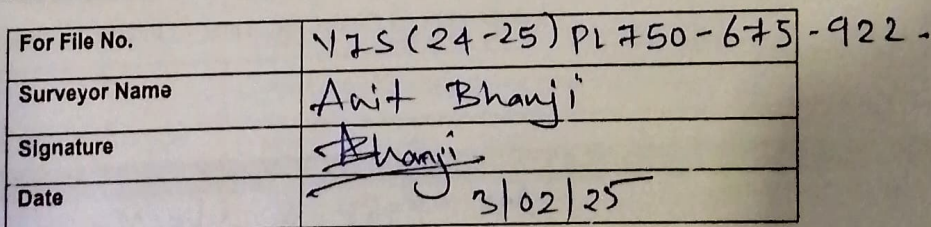 For File No. VIS (24-25) PL 750-675-922.
Surveyor Name Anit Bhanji
Signature Bhanji
Date 3/02/25